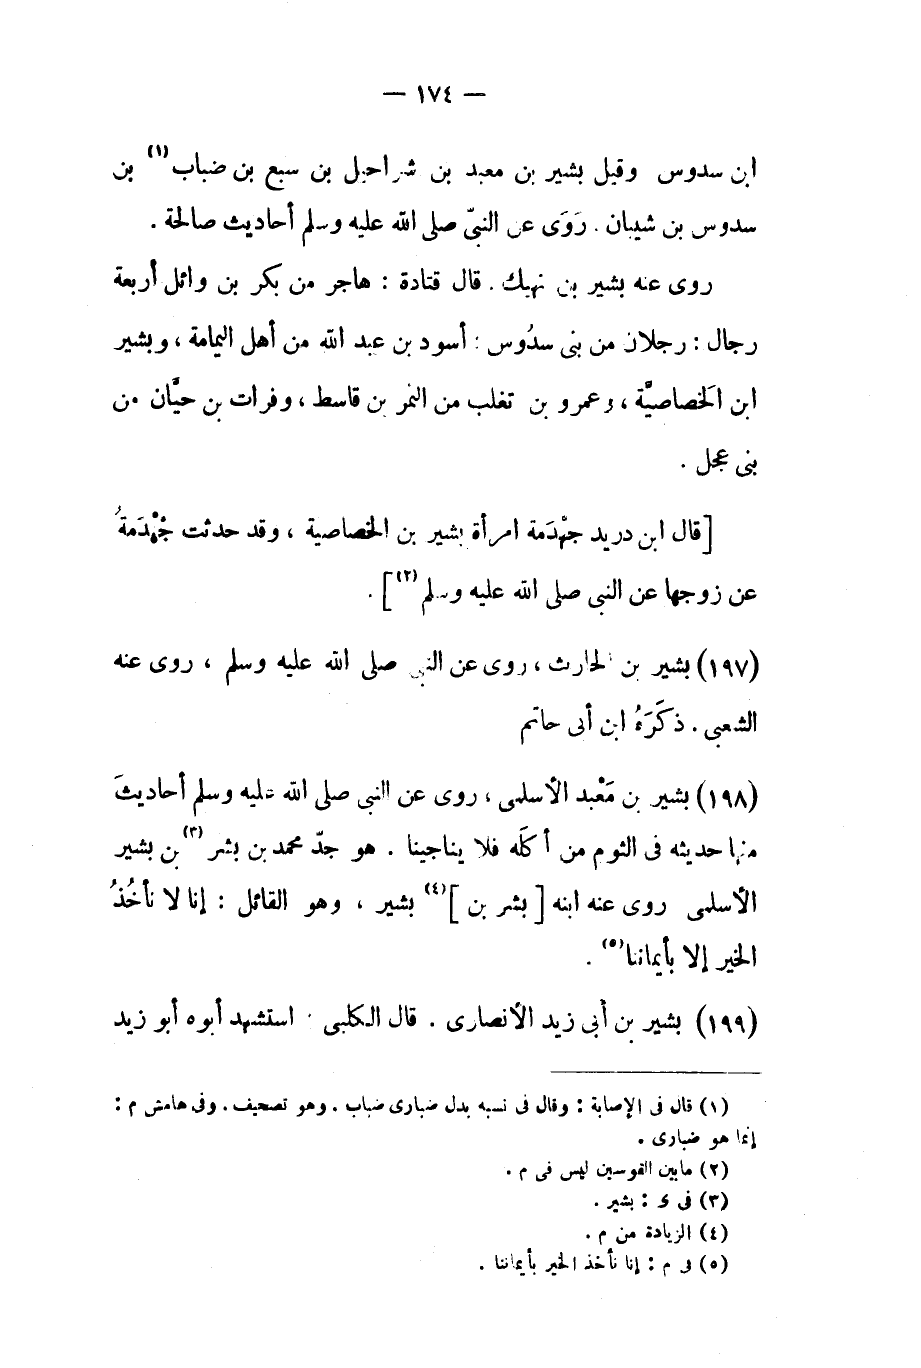 — ١٧٤ —
ابن سدوس وقيل بشير بن معبد بن شراحيل بن سبع بن ضباب(١) بن
سدوس بن شيبان . رَوَى عن النبيّ صلى الله عليه وسلم أحاديث صالحة .
روى عنه بشير بن نهيك . قال قتادة : هاجر من بكر بن وائل أربعة
رجال : رجلان من بنى سدُوس : أسود بن عبد الله من أهل اليمامة ، وبشير
ابن الخَصاصيَّة ، وعمرو بن تغلب من النمر بن قاسط ، وفرات بن حيَّان من
بنى عجل .
[قال ابن دريد جهْدَمة امرأة بشير بن الخصاصية ، وقد حدثت جُهْدَمةُ
عن زوجها عن النبى صلى الله عليه وسلم(٢)] .
(١٩٧) بشير بن الحارث ، روى عن النبى صلى الله عليه وسلم ، روى عنه
الشعبى . ذكَرَهُ ابن أبى حاتم
(١٩٨) بشير بن مَعْبد الأسلمى ، روى عن النبى صلى الله عليه وسلم أحاديثَ
منها حديثه فى الثوم من أكلَه فلا يناجينا . هو جدّ محمد بن بشر(٣) بن بشير
الأسلمى روى عنه ابنه [ بشر بن ](٤) بشير ، وهو القائل : إنا لا نأخُذُ
الخير إلا بأيماننا(٥) .
(١٩٩) بشير بن أبى زيد الأنصارى . قال الكلبى : استشهد أبوه أبو زيد
(١) قال فى الإصابة : وقال فى نسبه بدل ضبارى ضباب . وهو تصحيف . وفى هامش م :
إنما هو ضبارى .
(٢) مابين القوسين ليس فى م .
(٣) فى ى : بشير .
(٤) الزيادة من م .
(٥) فى م : إنا نأخذ الخير بأيماننا .